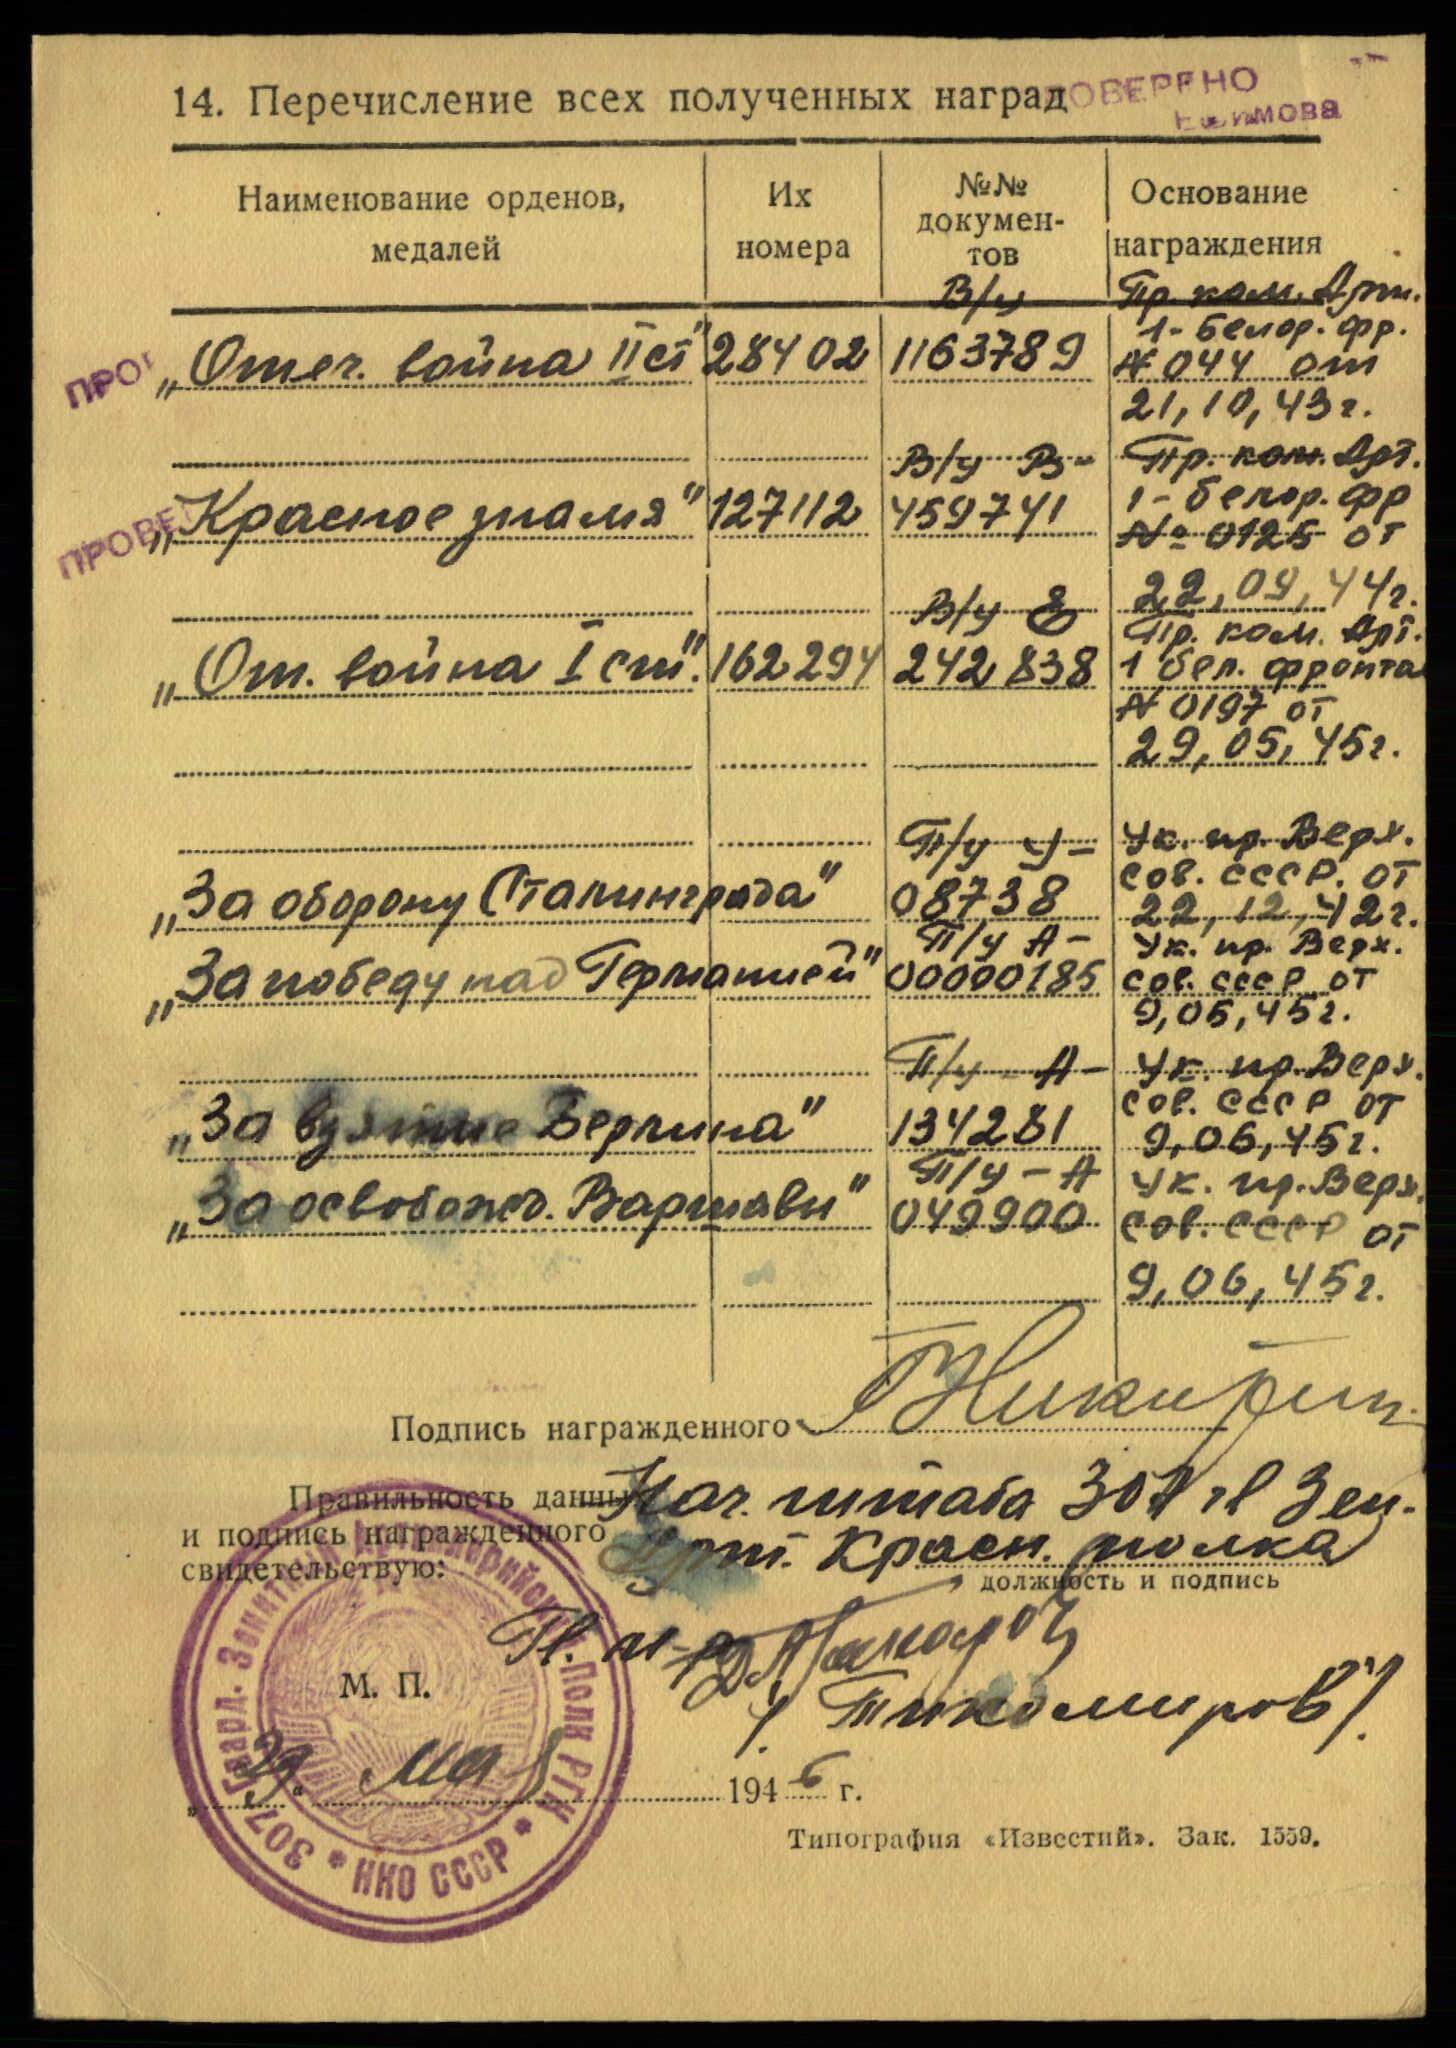 14. Перечисление всех полученных наград
Наименование орденов,
медалей
Их
номера
№№
докумен-
тов
Основание
награждения
„Отеч. война II ст" 28402
В/у
1163789
Пр. ком. Арт.
1-Белор. фр.
№ 044 от
21,10,43г.
„Красное знамя" 127112
В/у В-
459741
Пр. ком. Арт.
1-белор. фр
№ 0125 от
22,09,44г.
„От. война I ст". 162294
В/у
242838
Пр. ком. Арт.
1 бел. фронта
№ 0197 от
29,05,45г.
„За оборону Сталинграда"
П/у У-
08738
Ук. пр. Верх.
сов. СССР. от
22,12,42г.
„За победу над Германией"
П/у А-
00000185
Ук. пр. Верх.
сов. СССР от
9,05,45г.
„За взятие Берлина"
П/у - А-
134281
Ук. пр. Верх.
сов. СССР от
9,06,45г.
„За освобожд. Варшавы"
П/у - А
049900
Ук. пр. Верх.
сов. СССР от
9,06,45г.
Подпись награжденного
Правильность данных
и подпись награжденного
свидетельствую:
Нач. штаба 307 гв Зен.
Арт. Красн. полка
должность и подпись
Гв. м-р
/Тихомиров/.
М. П.
„29" мая 1946 г.
307 Гвард. Зенитный Артиллерийский Полк РГК
* НКО СССР *
Типография «Известий». Зак. 1559.